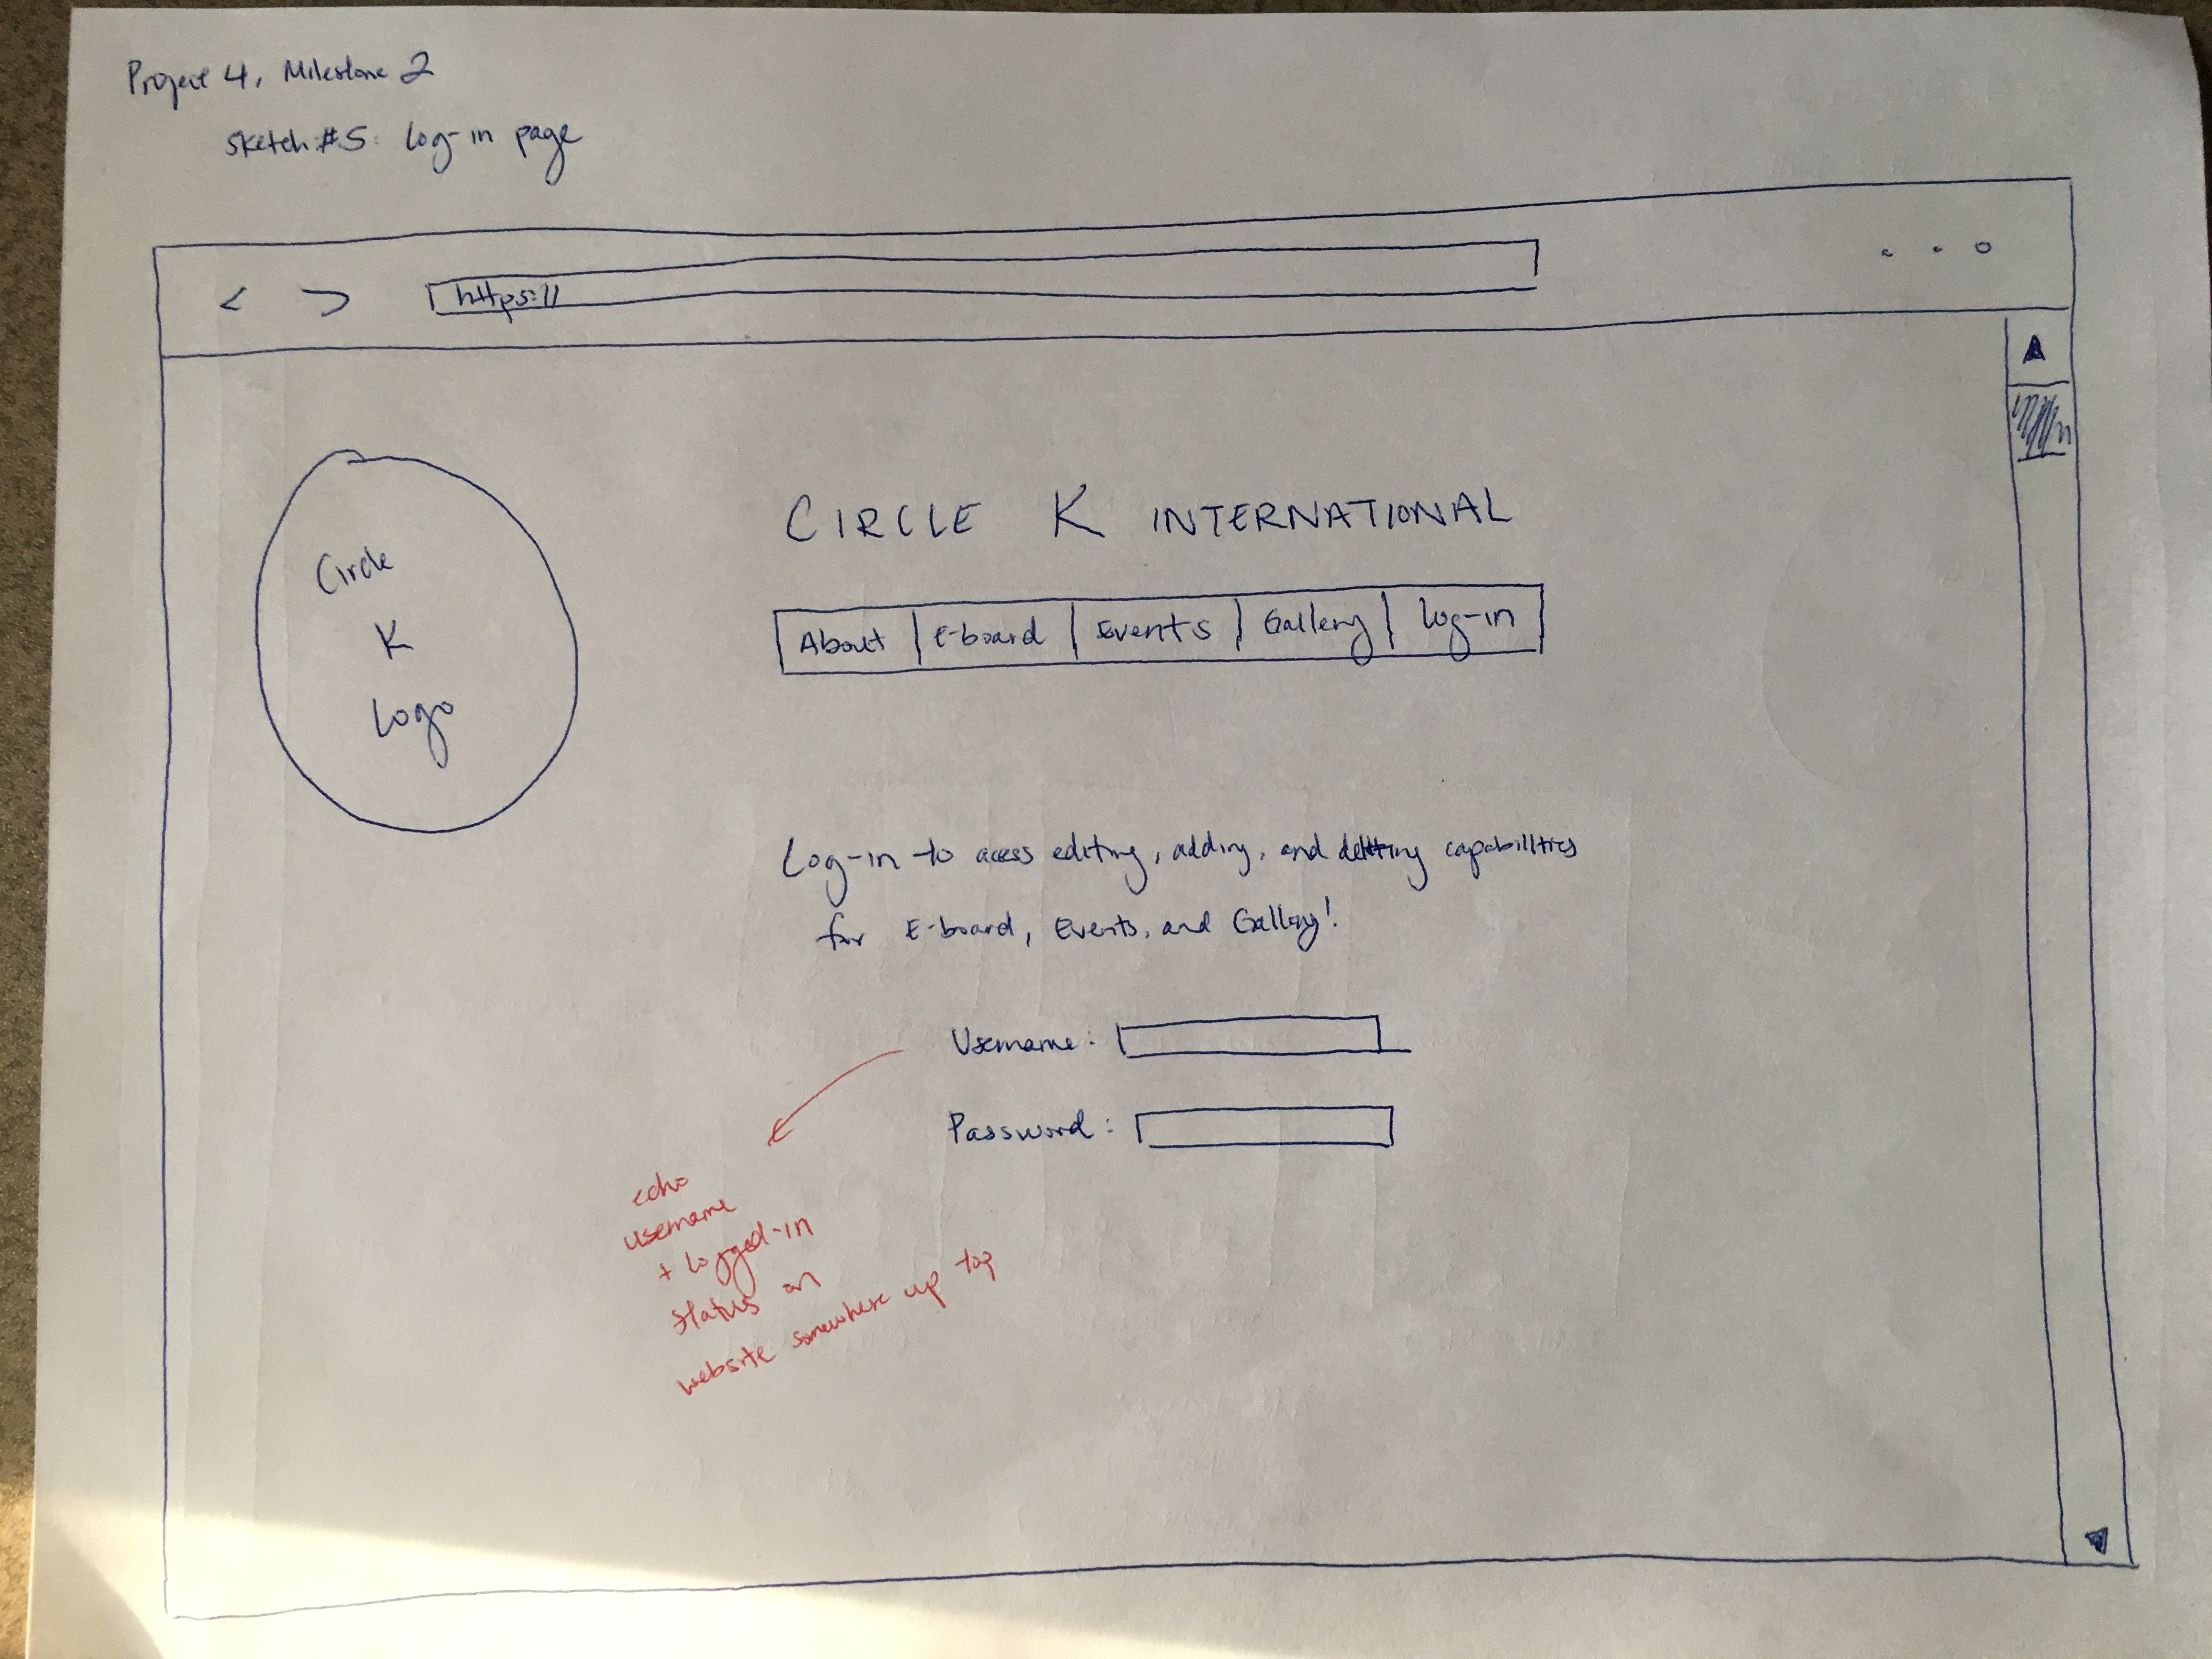 Project 4, Milestone 2
Sketch #5: Log-in page
< >
https://
CIRCLE K INTERNATIONAL
About | e-board | Events | Gallery | Log-in
Circle
K
Logo
Log-in to access editing, adding, and deleting capabilities
for E-board, Events, and Gallery!
Username:
Password:
echo
username
+ logged-in
status on
website somewhere up top